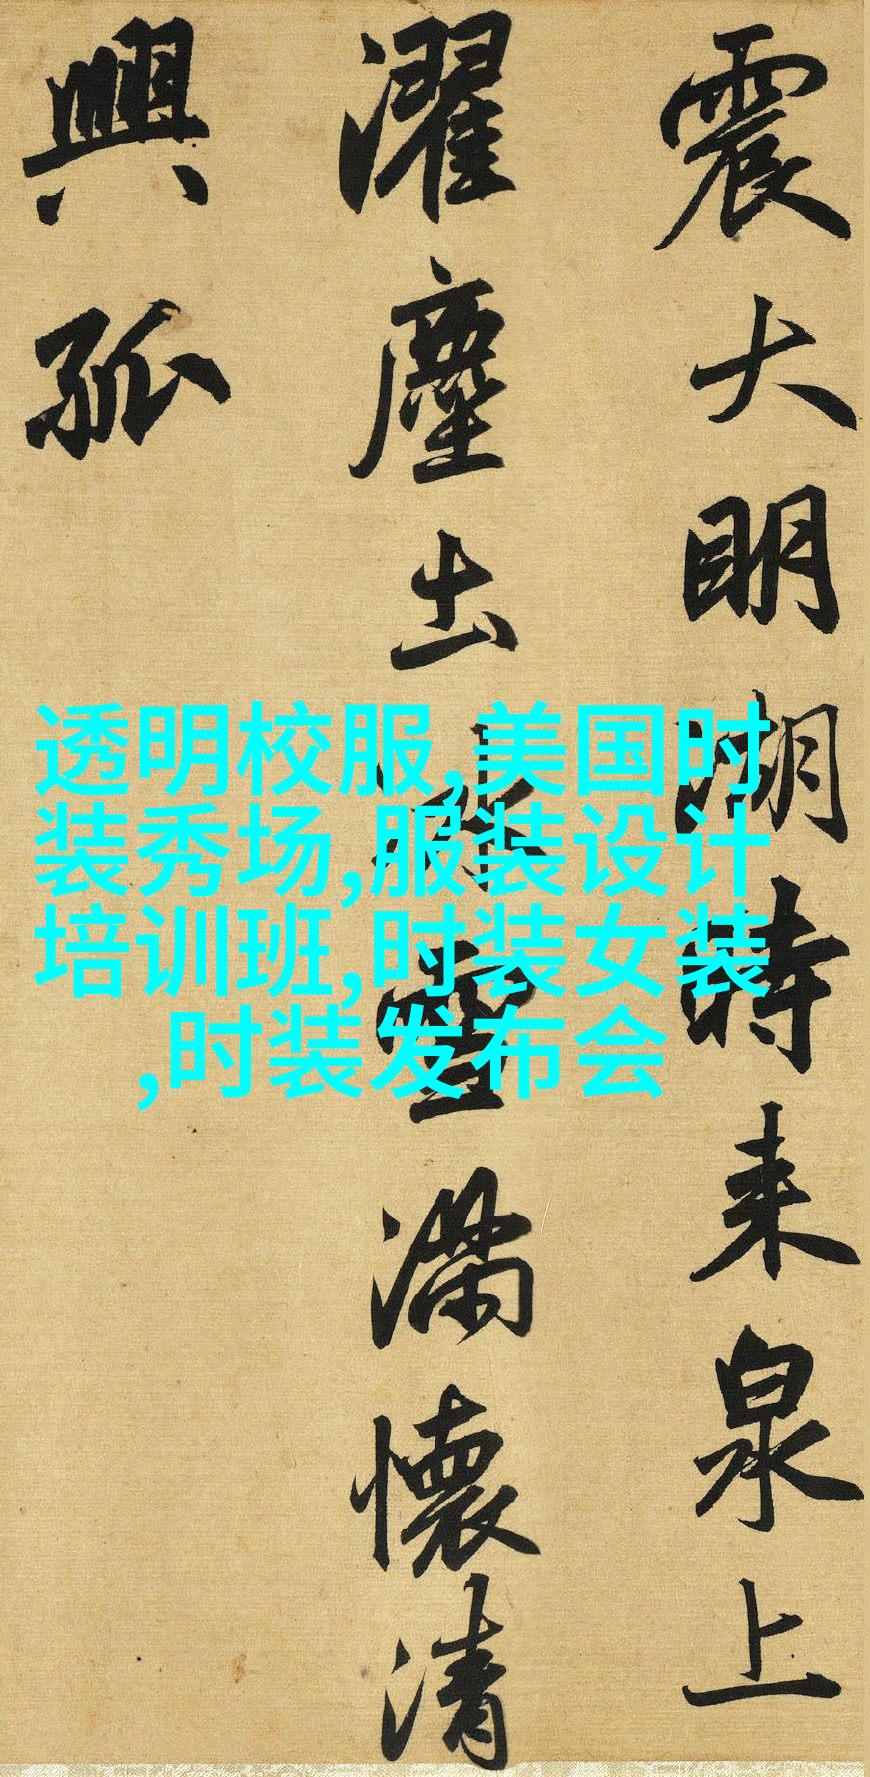 震大明湖時来泉上
濯塵土冰雪滿懷清
興孤
透明校服,美国时
装秀场,服装设计
培训班,时装女装
,时装发布会